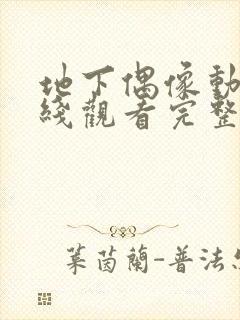 地下偶像動
綫觀看完整
葉茵蘭-普法